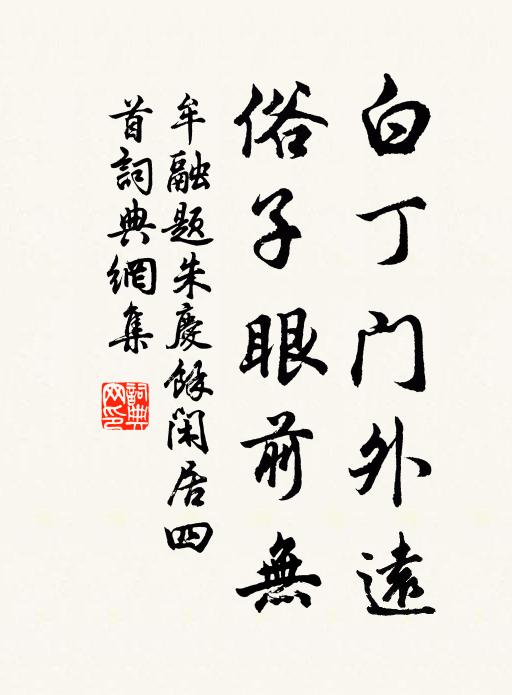 白丁门外遠
俗子眼前無
牟融题朱慶餘闲居四
首詞典網集
詞典
网印